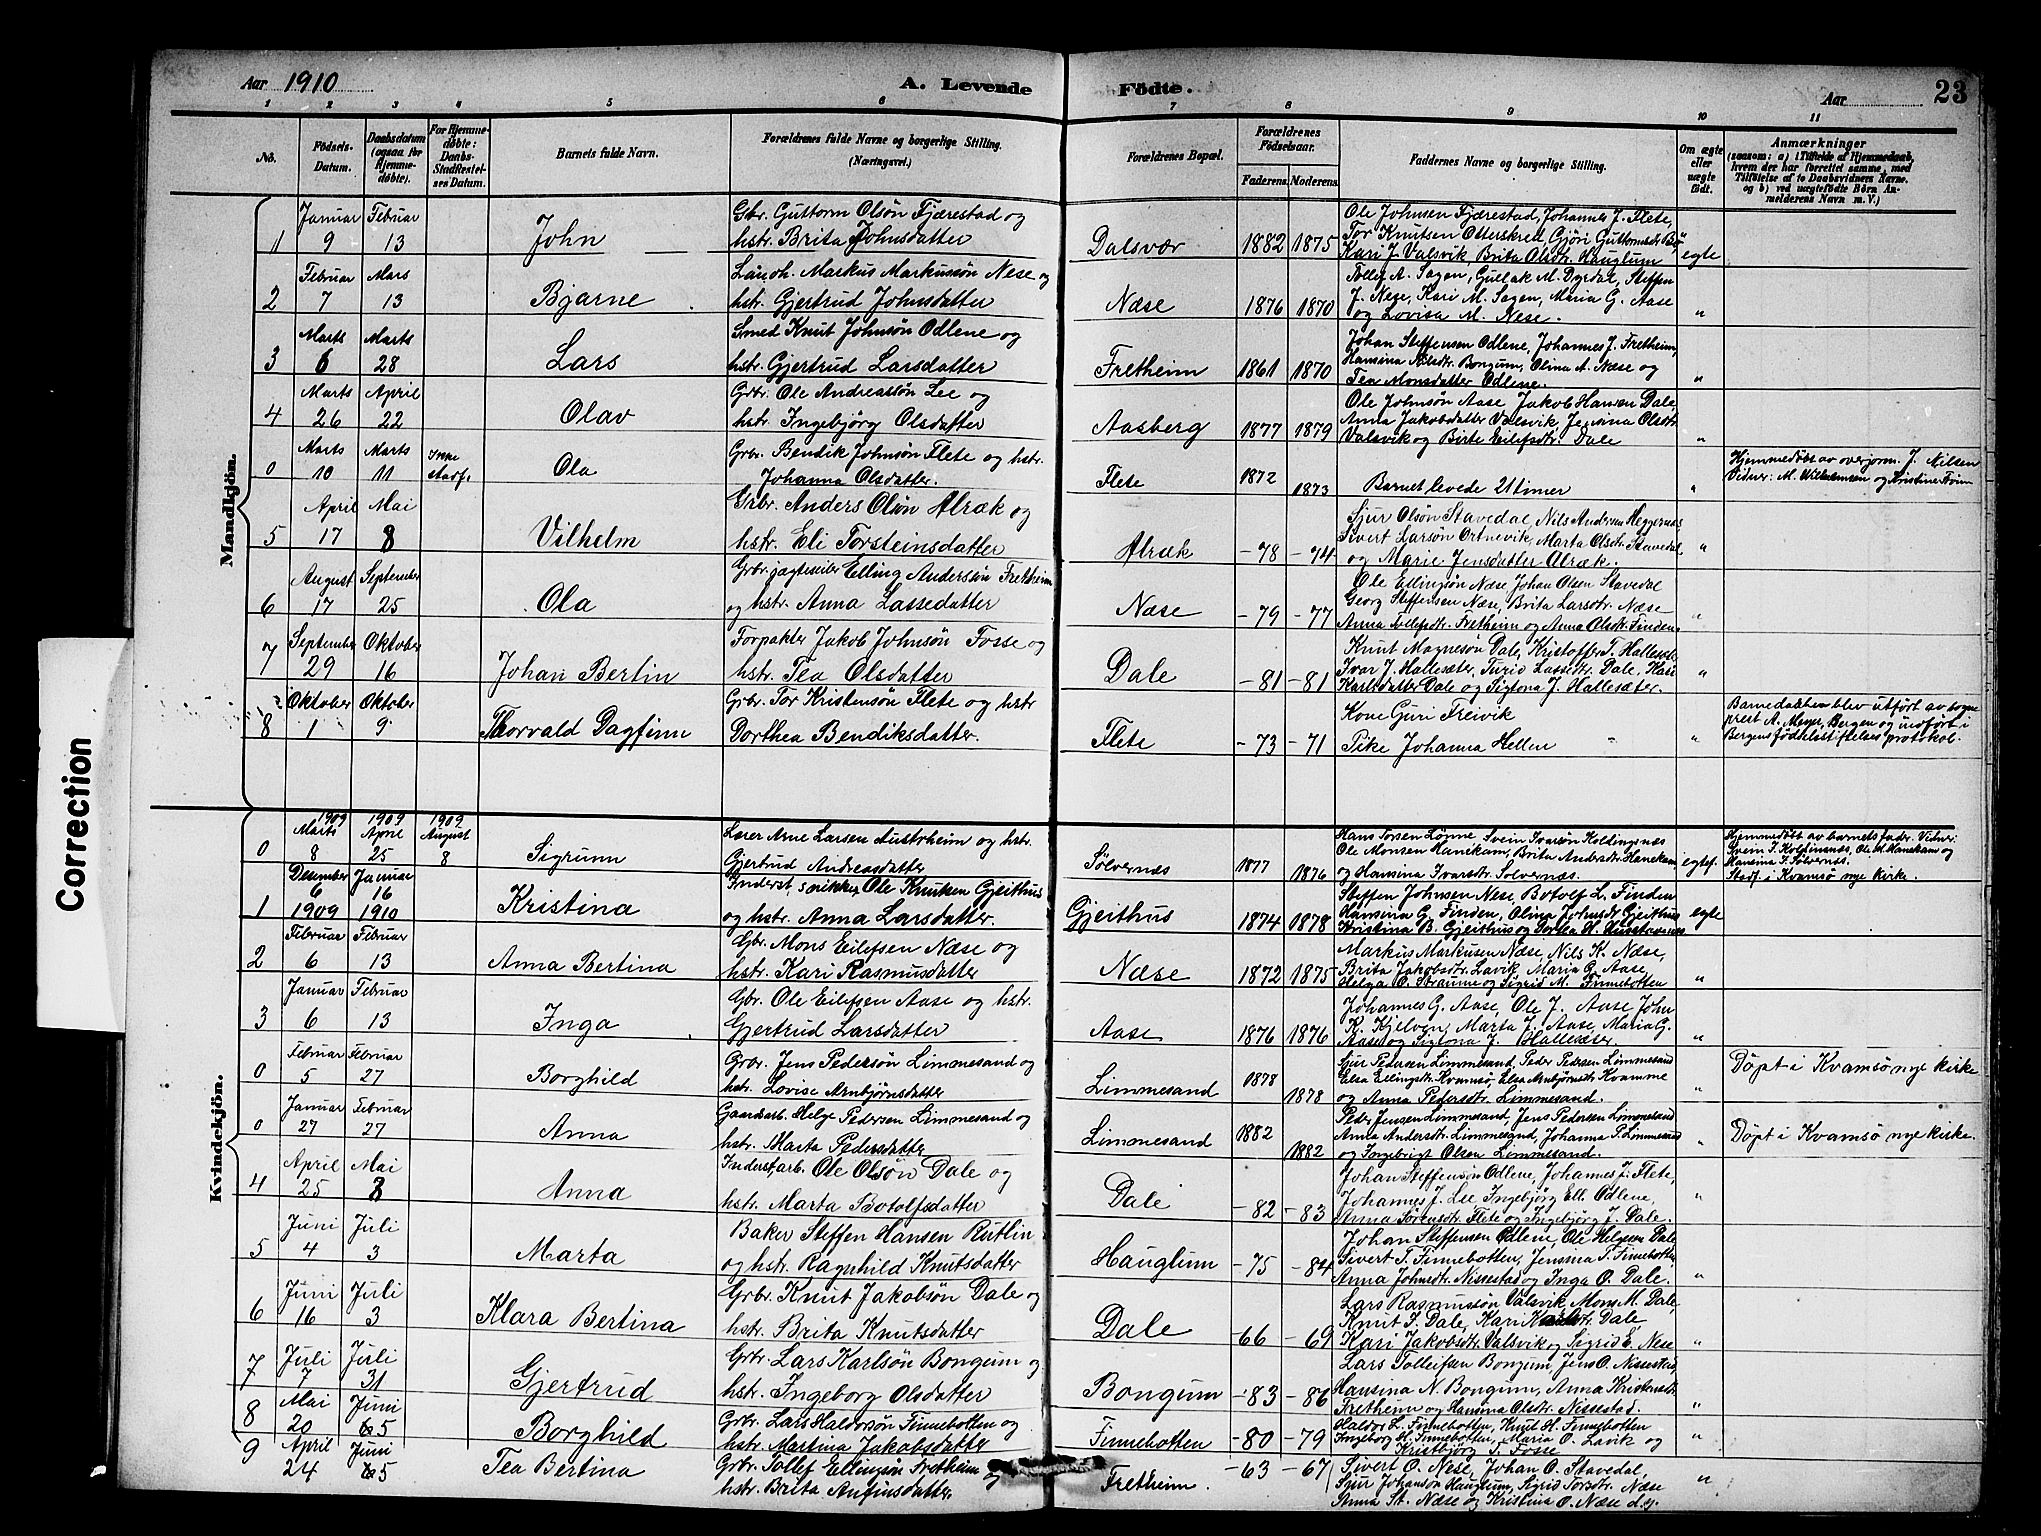 Aar 1910
A. Levende
Födte.
Aar
23
1 2 3 4 5 6 7 8 9 10 11
No.
Födsels-
Datum.
Daabsdatum
(ogsaa for
Hjemme-
døbte).
For Hjemme-
døbte:
Daabs-
Stadfestel-
ses Datum.
Barnets fulde Navn.
Forældrenes fulde Navne og borgerlige Stilling.
(Næringsvei.)
Forældrenes Bopæl.
Forældrenes
Fødselsaar.
Faderens. Moderens.
Faddernes Navne og borgerlige Stilling.
Om ægte
eller
uægte
født.
Anmærkninger
(saasom: a) i Tilfælde af Hjemmedaab,
hvem der har forrettet samme, med
Tilføielse af to Daabsvidners Navne.
og b) ved uægtefødte Börn An-
melderens Navn m. V.)
Mandkjön.
1
Januar 9
Februar 13
John
Gbr. Guttorm Olsön Fjærestad og
hstr. Brita Johnsdatter
Dalsvær
1882 1875
Ole Johnsen Fjærestad, Johannes J. Flete,
Tor Knutsen Otterskred, Gjöri Guttormsdtr. Bö,
Kari J. Valsvik, Brita Olsdtr. Hauglum
egte
2
Februar 7
Mars 13
Bjarne
Landh. Markus Markussön Nese og
hstr. Gjertrud Johnsdatter
Næse
1876 1870
Tollef A. Sagen, Gullak M. Dyrdal, Steffen
J. Nese, Kari M. Sagen, Maria G. Aase
og Lovisa M. Nese.
"
3
Marts 6
Marts 28
Lars
Smed Knut Johnsön Odlene og
hstr. Gjertrud Larsdatter
Fretheim
1861 1870
Johan Steffensen Odlene, Johannes J. Fretheim,
Hansina Nilsdtr. Bongum, Olina A. Næse og
Tea Monsdatter Odlene.
"
4
Marts 26
April 22
Olav
Grbr. Ole Andreassön Lee og
hstr. Ingebjörg Olsdatter
Aasberg
1877 1879
Ole Johnsön Aase, Jakob Hansen Dale
Anna Jakobsdatter Valsvik, Jensina Olsdtr.
Valsvik og Birte Eilefsdtr. Dale
"
0
Marts 10
Marts 11
Ikke stadf.
Ola
Grbr. Bendik Johnsön Flete og hstr.
Johanna Olsdatter.
Flete
1872 1873
Barnet levede 21 timer
"
Hjemmedöbt av overjorm. J. Nilsen
Vidner: M. Wilhelmsen og Kristine
5
April 17
Mai 8
Vilhelm
Grbr. Anders Olsön Alræk og
hstr. Eli Torsteinsdatter
Alræk
-78 -74
Sjur Olsön Stavedal, Nils Andersen Heggernes
Sivert Larsön Ortnevik, Marta Olsdtr. Stavedal
og Marie Jensdatter Alræk.
"
6
August 17
September 25
Ola
Grbr. jægteeier Elling Andersön Fretheim
og hstr. Anna Lassedatter
Næse
-79 -77
Ole Ellingsön Næse, Johan Olsen Stavedal
Georg Steffensen Næse, Brita Larsdtr. Næse
Anna Tollefsdtr. Fretheim og Anna Olsdtr. Finden.
"
7
September 29
Oktober 16
Johan Bertin
Forpakter Jakob Johnsön Fosse og
hstr. Tea Olsdatter
Dale
-81 -81
Knut Magnesön Dale, Kristoffer T. Hallesæter
Ivar J. Hallesæter, Turid Lassedtr. Dale, Kari
Karlsdatter Dale og Sigtona J. Hallesæter.
"
8
Oktober 1
Oktober 9
Thorvald Dagfinn
Grbr. Tor Kristensön Flete og hstr
Dorthea Bendiksdatter.
Flete
-73 -71
Kone Guri Freivik
Pike Johanna Hellen
"
Barnedaaben blev utfört av sogne
prest A. Meyer, Bergen og indfört i
Bergens födselsstiftelses protokol.
Kvindekjön.
0
1909 Marts 8
1909 April 25
1909 August 8
Sigrunn
Lærer Arne Larsen Austrheim og hstr.
Gjertrud Andreasdatter
Sölvernæs
1877 1876
Hans Torsen Lönne Svein Ivarsön Koldingnæs
Ole Monsen Hanekam, Brita Andersdtr. Hanekam,
og Hansina Ivarsdtr. Solvernæs.
egtef.
Hjemmedöbt av barnets fader. Vidner:
Svein I. Koldinsnæs, Ole M. Hanekam og
Hansina I. Sölvernæs.
Stadf. i Kvamsö nye kirke.
1
Desember 6 1909
Januar 16 1910
Kristina
Inderst, snikker, Ole Knutsen Gjeithus
og hstr. Anna Larsdatter.
Gjeithus
1874 1878
Steffen Johnsen Nese, Botolf L. Finden
Hansina G. Finden, Olina Johnsdtr. Gjeithus
Kristina B. Gjeithus og
egte
2
Februar 6
Februar 13
Anna Bertina
Gbr. Mons Eilefsen Næse og
hstr. Kari Rasmusdatter
Næse
1872 1875
Markus Markusen Næse, Nils K. Næse,
Brita Jakobsdtr. Lavik, Maria G. Aase,
Helga O. Straume og Sigrid M. Finnebotten
"
3
Januar 6
Februar 13
Inga
Gbr. Ole Eilefsen Aase og hstr.
Gjertrud Larsdatter
Aase
1876 1876
Johannes G. Aase, Ole J. Aase, John
K. Kjelven, Marta J. Aase, Maria G.
Aase og Sigtona J. Hallesæter.
"
0
Februar 5
Februar 27
Borghild
Grbr. Jens Pedersön Limmesand og
hstr. Lovise Arnbjörnsdatter
Limmesand
1878 1878
Sjur Pedersen Limmesand, Peder Pedersen Limmesand
Elsa Ellingsdtr. Kvamsö, Elsa Arnbjörnsdtr. Kvamme
og Anna Pedersdtr. Limmesand.
"
Döpt i Kvamsö nye kirke
0
Januar 27
Februar 27
Anna
Gaardarb. Helge Pedersen Limmesand og
hstr. Marta Pedersdatter
Limmesand
1882 1882
Peder Jensen Limmesand, Jens Pedersen Limmesand
Anna Andersdtr. Limmesand, Johanna P. Limmesand
og Ingebrigt Olsen Limmesand.
"
Döpt i Kvamsö nye kirke.
4
April 25
Mai 8
Anna
Inderst, arb. Ole Olsön Dale og
hstr. Marta Botolfsdatter
Dale
-82 -83
Johan Steffensön Odlene, Johannes J. Flete,
Johannes J. Lee, Ingebjörg Ell. Odlene,
Anna Sörensdtr. Flete og Ingebjörg J. Dale.
"
5
Juni 4
Juli 3
Marta
Baker Steffen Hansen Rutlin
og hstr. Ragnhild Knutsdatter
Hauglum
-75 -84
Johan Steffensen Odlene, Ole Helgesen Dale
Sivert T. Finnebotten, Jensina T. Finnebotten
Anna Johnsdtr. Nissestad og Inga O. Dale.
"
6
Juni 16
Juli 3
Klara Bertina
Grbr. Knut Jakobsön Dale og
hstr. Brita Knutsdatter
Dale
-66 -69
Lars Rasmussön Valsvik, Mons M. Dale,
Knut J. Dale, Kari Karlsdtr. Dale,
Kari Jakobsdtr. Valsvik og Sigrid E. Nese
"
7
Juli 7
Juli 31
Gjertrud
Grbr. Lars Karlsön Bongum og
hstr. Ingeborg Olsdatter
Bongum
-83 -86
Lars Tolleifsen Bongum, Jens O. Nissestad,
Hansina N. Bongum, Anna Kristensdtr.
Fretheim og Hansina Olsdtr. Nissestad.
"
8
Mai 20
Juni 5
Borghild
Grbr. Lars Haldorsön Finnebotten og
hstr. Martina Jakobsdatter
Finnebotten
-80 -79
Haldor L. Finnebotten, Knut H. Finnebotten
Ingeborg H. Finnebotten, Maria O. Lavik og
Kristbjörg T. Fosse
"
9
April 24
Juni 5
Tea Bertina
Grbr. Tollef Ellingsön Fretheim og
hstr. Brita Anfinsdatter.
Fretheim.
-63 -67
Sivert O. Nese, Johan O. Stavedal,
Sjur Johansön Hauglum, Sigrid Torsdtr. Næse
Anna St. Næse og Kristina O. Næse d.y.
"
Correction